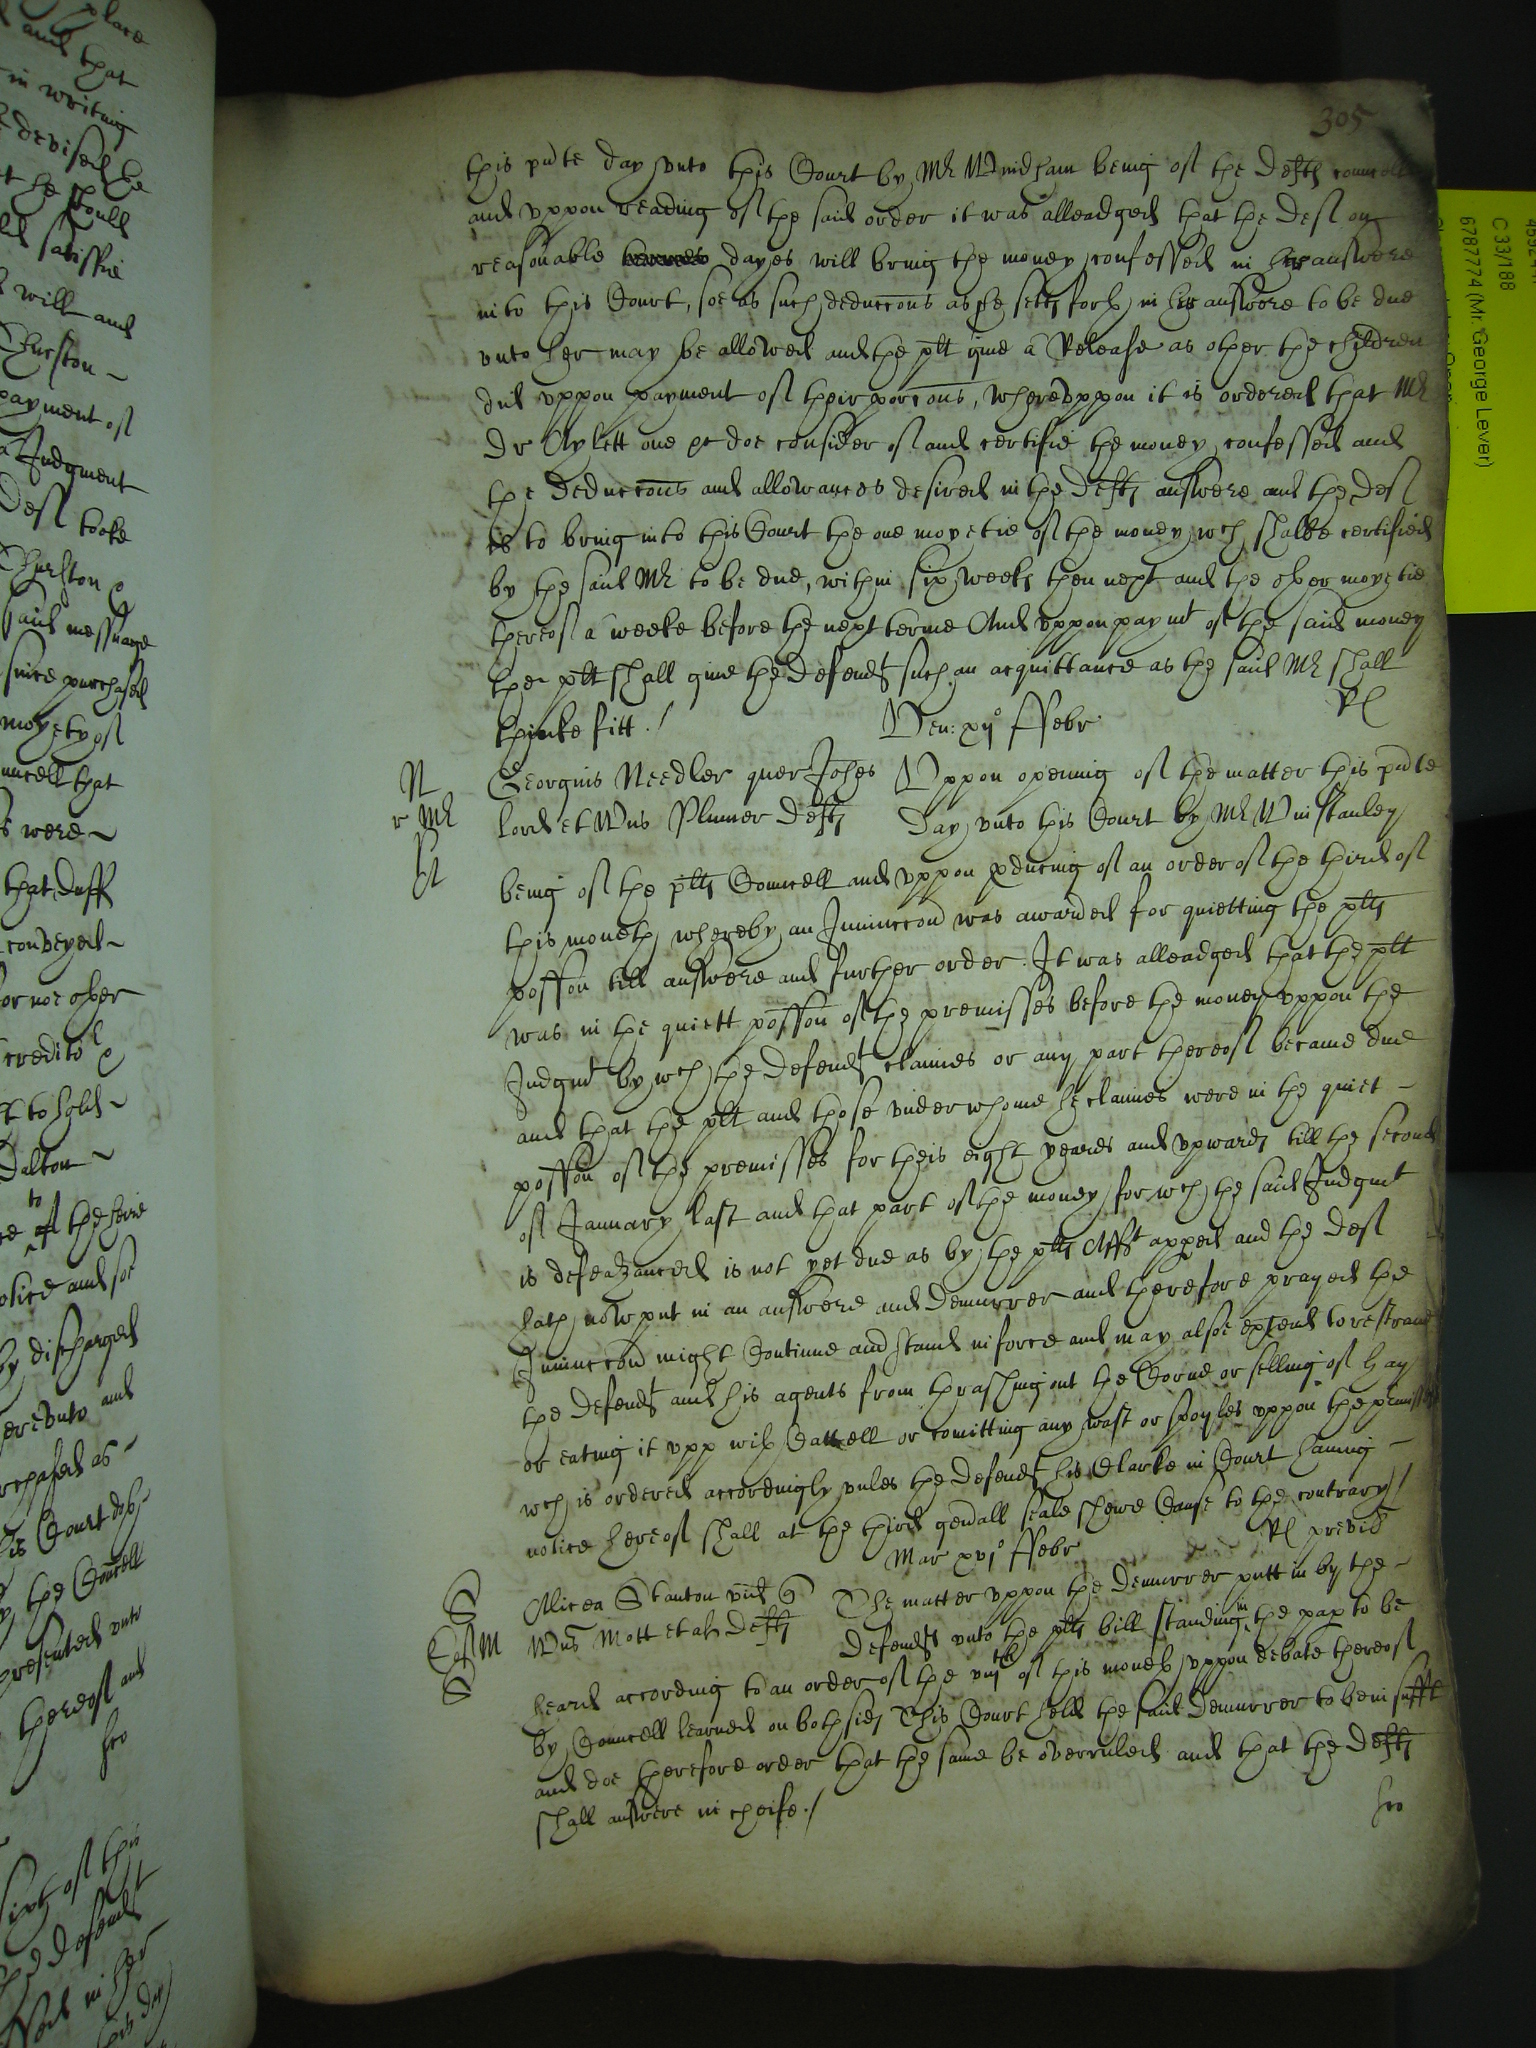 305
this pnte day vnto this Court by Mr Windham being of the defts councell
and vppon reading of the said order it was alleadged that the deft on
reasonable dayes will bring the money confessed in her answere
into this Court, soe as such deduccons as she setts forth in her answere to be due
vnto her may be allowed and the plt giue a Release as other the children
did vppon payment of their porcons, wherevppon it is ordered that Mr
Dr Aylett one &c doe consider of and certifie the money confessed and
the deduccons and allowances desired in the defts answere and the deft
is to bring into this Court the one moyetie of the money wch shalbe certified
by the said Mr to be due, within six weeks then next and the other moyetie
thereof a weeke before the next terme And vppon paymt of the said money
the plt shall giue the defendt such an acquittance as the said Mr shall
thinke fitt ./
Rl
Ven: xijo ffebr
N
r Mr
Georgius Needler quer Johes
Lord et Wus Plumer defts
Vppon opening of the matter this pnte
day vnto this Court by Mr Winstanley
being of the plts Councell and vppon pducing of an order of the third of
this moneth whereby an Iniunccon was awarded for quietting the plts
possion till answere and further order. It was alleadged that the plt
was in the quiett possion of the premisses before the money vppon the
Judgmt by wch the defendt claimes or any part thereof became due
and that the plt and those vnder whome he claimes were in the quiet -
possion of the premisses for theis eight yeares and vpwards till the second
of January last and that part of the money for wch the said Judgmt
is defeazanced is not yet due as by the plts Afft apped and the deft
hath now put in an answere and demurrer and therefore prayed the
Iniunccon might Continue and stand in force and may alsoe extend to restraine
the defendt and his agents from thrashing out the Corne or selling of hay
or eating it vpp with Cattell or comitting any wast or spoyles vppon the pmisses
wch is ordered accordingly vnles the defendt his Clarke in Court haueing -
notice hereof shall at the third genall seale shewe Cause to the contrary /
Rl
Mar xvjo ffebr
S
M
S
Alicea Stanton vid q
Wus Mott et al defts
The matter vppon the demurrer putt in by the -
defendts vnto the plts bill standing in the pap to be
heard according to an order of the viijth of this moneth vppon debate thereof
by Councell learned on both sides This Court held the said demurrer to be insufft
and doe therefore order that the same be overruled and that the defts
shall answere in cheife ./
C 33/188
6787774 (Mr. George Lever)
place
and that
in writing
devised
he should
satisfie
will and
Thurston -
payment of
Judgment
Deft tooke
Thurston
said messuage
since purchased
moyety of
that
were -
that
conveyed -
for noe other
credito
to hold -
Dalton -
to
the heire
notice and soe
by discharged
herevnto and
as -
this Court
by the Councell
presented vnto
thereof and
of this
the defendt
in her